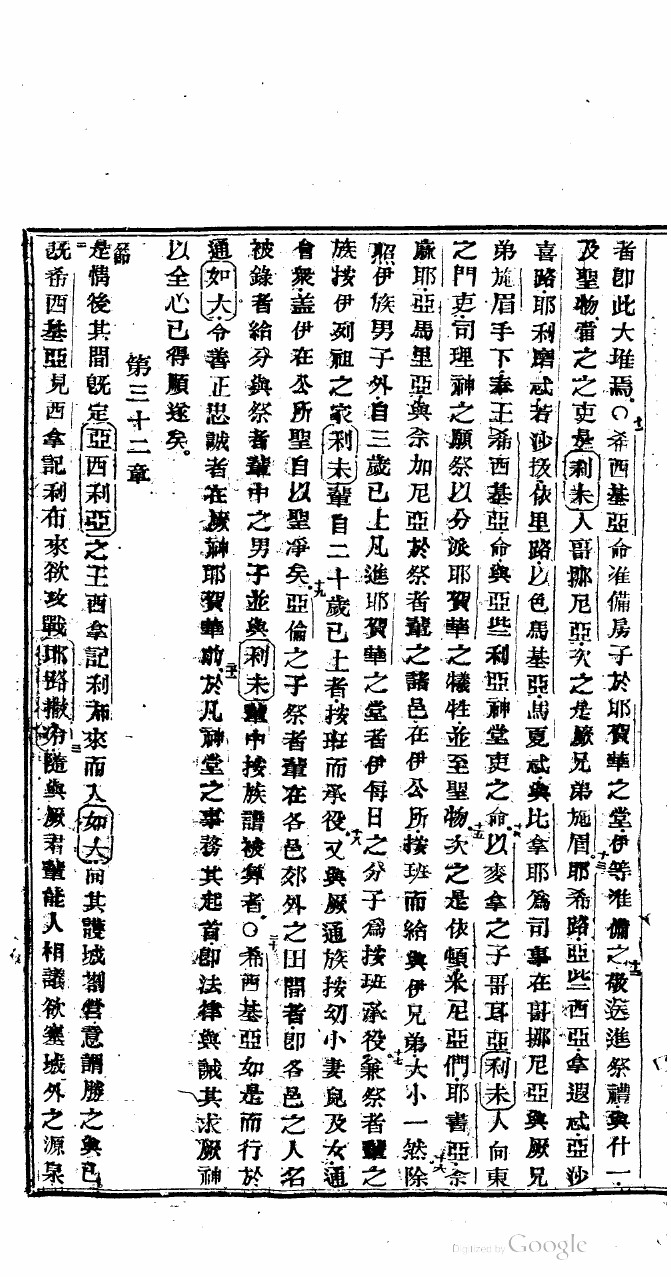 者卽此大堆焉。○希西基亞命准備房子於耶賀華之堂、伊等准備之敬送進祭禮與什一、
及聖物畱之之吏是利未人哥挪尼亞、次之是厥兄弟施眉耶希路、亞些西亞拿遐忒、亞沙
喜路、耶利磨忒若沙扱依里路以色馬基亞、馬夏忒與比拿耶爲司事在哥挪尼亞與厥兄
弟施眉手下奉王希西基亞命與亞些利亞神堂吏之命以麥拿之子哥耳亞利未人向東
之門吏司理神之願祭以分派耶賀華之犧牲並至聖物、次之是依頓米尼亞們、耶書亞、余
麻耶、亞馬里亞、與余加尼亞於祭者輩之諸邑在伊公所、按班而給與伊兄弟大小一然除
照伊族男子外自三歲已上凡進耶賀華之堂者伊每日之分子爲按班承役兼祭者輩之
族按伊列祖之家利未輩自二十歲已上者按班而承役又與厥通族按幼小妻兒及女通
會衆盖伊在公所聖自以聖凈矣亞倫之子祭者輩在各邑郊外之田間者卽各邑之人名
被錄者給分與祭者輩中之男子並與利未輩中按族譜被算者。○希西基亞如是而行於
通如大、令善正忠誠者在厥神耶賀華前、於凡神堂之事務其起首卽法律與誡其求厥神
以全心已得順遂矣。
第三十二章
節
是情後其間旣定亞西利亞之王西拿記利布來而入如大向其護城劄營意謂勝之與己
旣希西基亞見西拿記利布來欲攻戰耶路撒冷隨與厥君輩能人相議欲塞城外之源泉
Digitized by Google